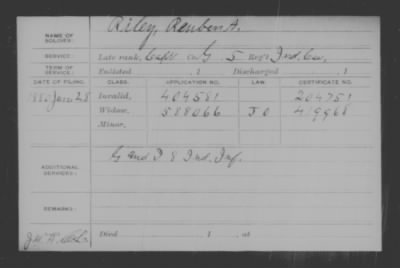 Riley, Reuben A.
NAME OF SOLDIER:
SERVICE: Late rank, Capt Co. G 5 Reg't Ind. Cav.
TERM OF SERVICE: Enlisted , 1 Discharged , 1
DATE OF FILING. CLASS. APPLICATION NO. LAW. CERTIFICATE NO.
Jan 28 Invalid, 404581 204751
Widow, 588066 419968
Minor,
ADDITIONAL SERVICES: G and I 8 Ind. Inf.
REMARKS:
Died , 1 , at